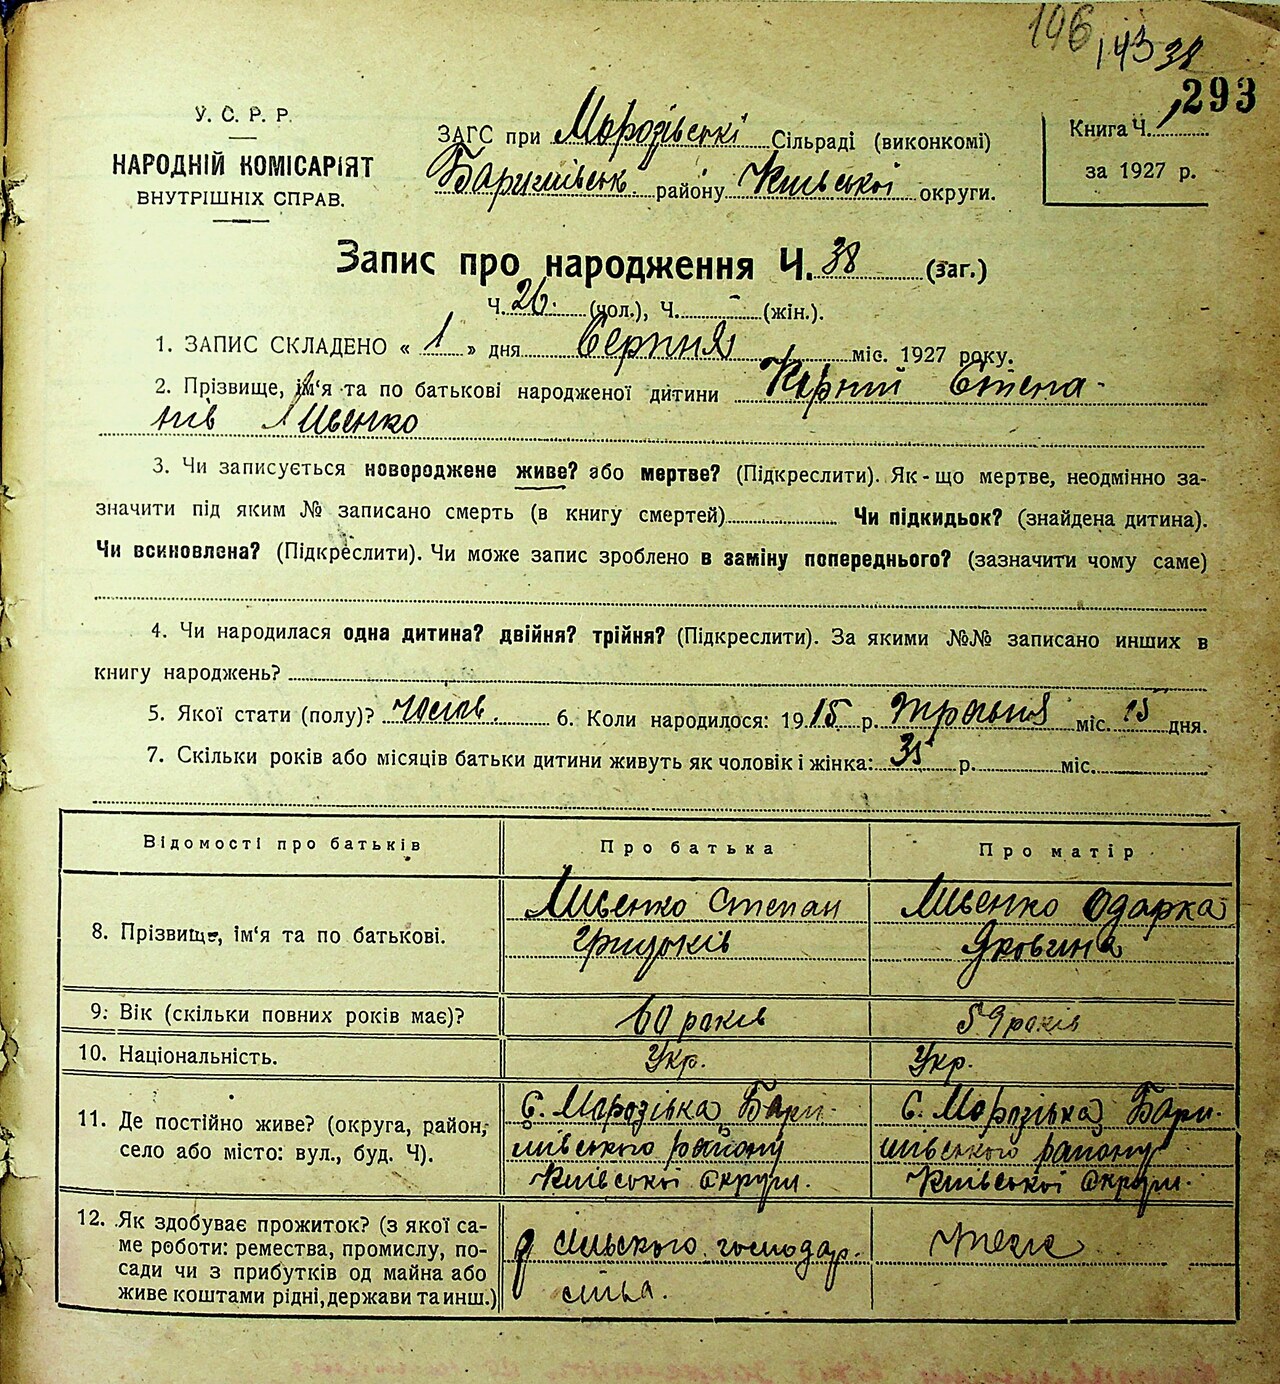 196 143 38
293
У. С. Р. Р.
НАРОДНІЙ КОМІСАРІЯТ
ВНУТРІШНІХ СПРАВ.
ЗАГС при Морозівській Сільраді (виконкомі)
Баришівськ. району Київської округи.
Книга Ч.
за 1927 р.
Запис про народження Ч. 38 (заг.)
Ч. 26. (чол.), Ч. - (жін.).
1. ЗАПИС СКЛАДЕНО « 1 » дня Серпня міс. 1927 року.
2. Прізвище, ім'я та по батькові народженої дитини Корній Степа-
нів
3. Чи записується новороджене живе? або мертве? (Підкреслити). Як-що мертве, неодмінно за-
значити під яким № записано смерть (в книгу смертей) Чи підкидьок? (знайдена дитина).
Чи всиновлена? (Підкреслити). Чи може запис зроблено в заміну попереднього? (зазначити чому саме)
4. Чи народилася одна дитина? двійня? трійня? (Підкреслити). За якими №№ записано инших в
книгу народжень?
5. Якої стати (полу)? чолов. 6. Коли народилося: 1915 р. Травня міс. 15 дня.
7. Скільки років або місяців батьки дитини живуть як чоловік і жінка: 35 р. міс.
Відомості про батьків Про батька Про матір
8. Прізвище, ім'я та по батькові.
Степан
Одарка
Яковина
9. Вік (скільки повних років має)? 60 років 59 років
10. Національність. Укр. Укр.
11. Де постійно живе? (округа, район,
село або місто: вул., буд. Ч).
С. Морозівка Бари-
шівського району
Київської округи.
С. Морозівка Бари-
шівського району
Київської округи.
12. Як здобуває прожиток? (з якої са-
ме роботи: ремества, промислу, по-
сади чи з прибутків од майна або
живе коштами рідні, держави та инш.)
з сільського господар-
ства.
теж